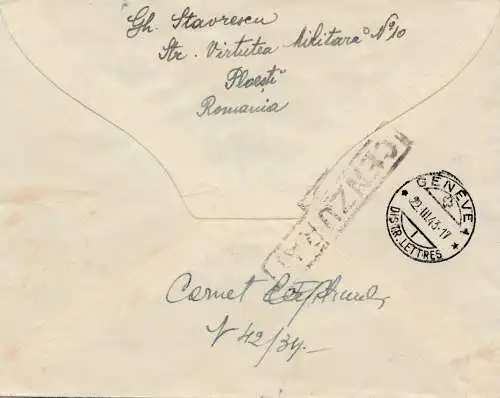 Gh. Stavrescu
Str. Virtutea Militară No 10
Ploești
Romania
CENZURAT
GENÈVE 1
22.III.43-17
1
DISTR. LETTRES
Carnet
N 42/34.-